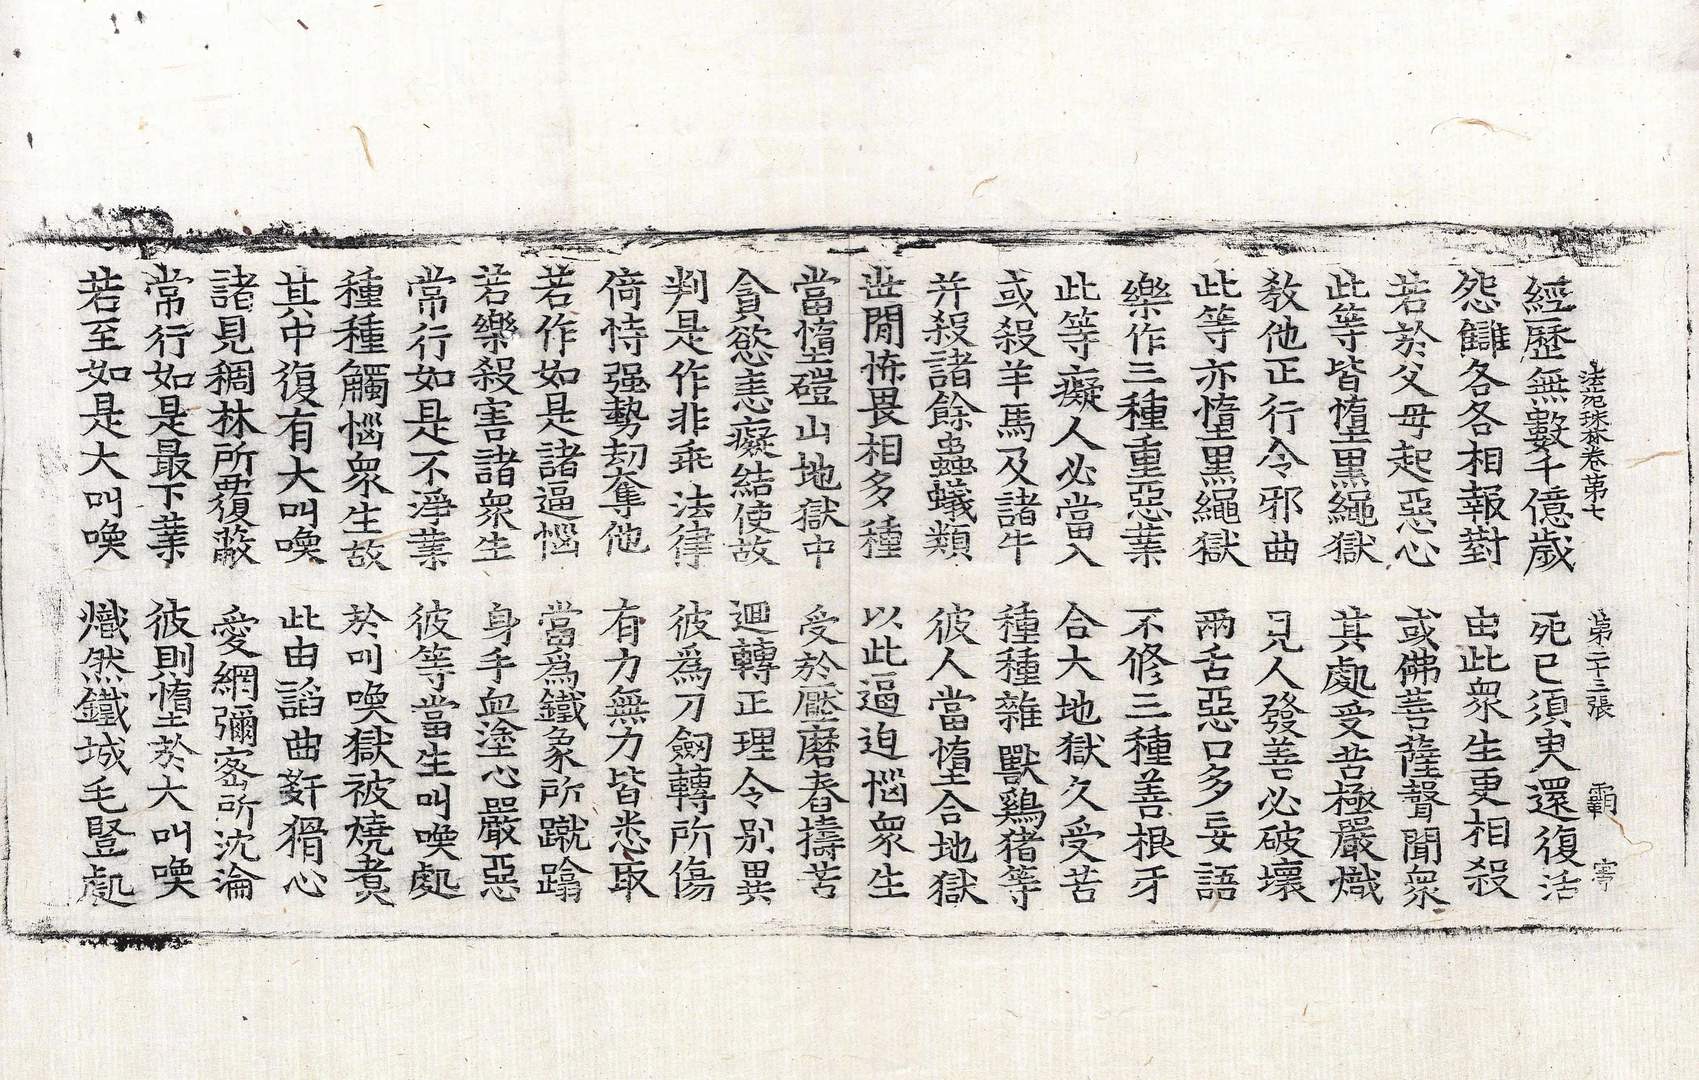 法苑珠林卷第七 第二十三張 霸 寄
經歷無數千億歲 死已須臾還復活
怨讎各各相報對 由此衆生更相殺
若於父母起惡心 或佛菩薩聲聞衆
此等皆墮黑繩獄 其處受苦極嚴熾
教他正行令邪曲 見人發善必破壞
此等亦墮黑繩獄 兩舌惡口多妄語
樂作三種重惡業 不修三種善根牙
此等癡人必當入 合大地獄久受苦
或殺羊馬及諸牛 種種雜獸鷄猪等
并殺諸餘蟲蟻類 彼人當墮合地獄
世閒怖畏相多種 以此逼迫惱衆生
當墮磑山地獄中 受於壓磨舂擣苦
貪慾恚癡結使故 迴轉正理令別異
判是作非乖法律 彼爲刀劒轉所傷
倚恃强勢劫奪他 有力無力皆悉取
若作如是諸逼惱 當爲鐵象所蹴蹹
若樂殺害諸衆生 身手血塗心嚴惡
常行如是不淨業 彼等當生叫喚處
種種觸惱衆生故 於叫喚獄被燒煮
其中復有大叫喚 此由諂曲姧猾心
諸見稠林所覆蔽 愛網彌密所沈淪
常行如是最下業 彼則墮於大叫喚
若至如是大叫喚 熾然鐵城毛豎處